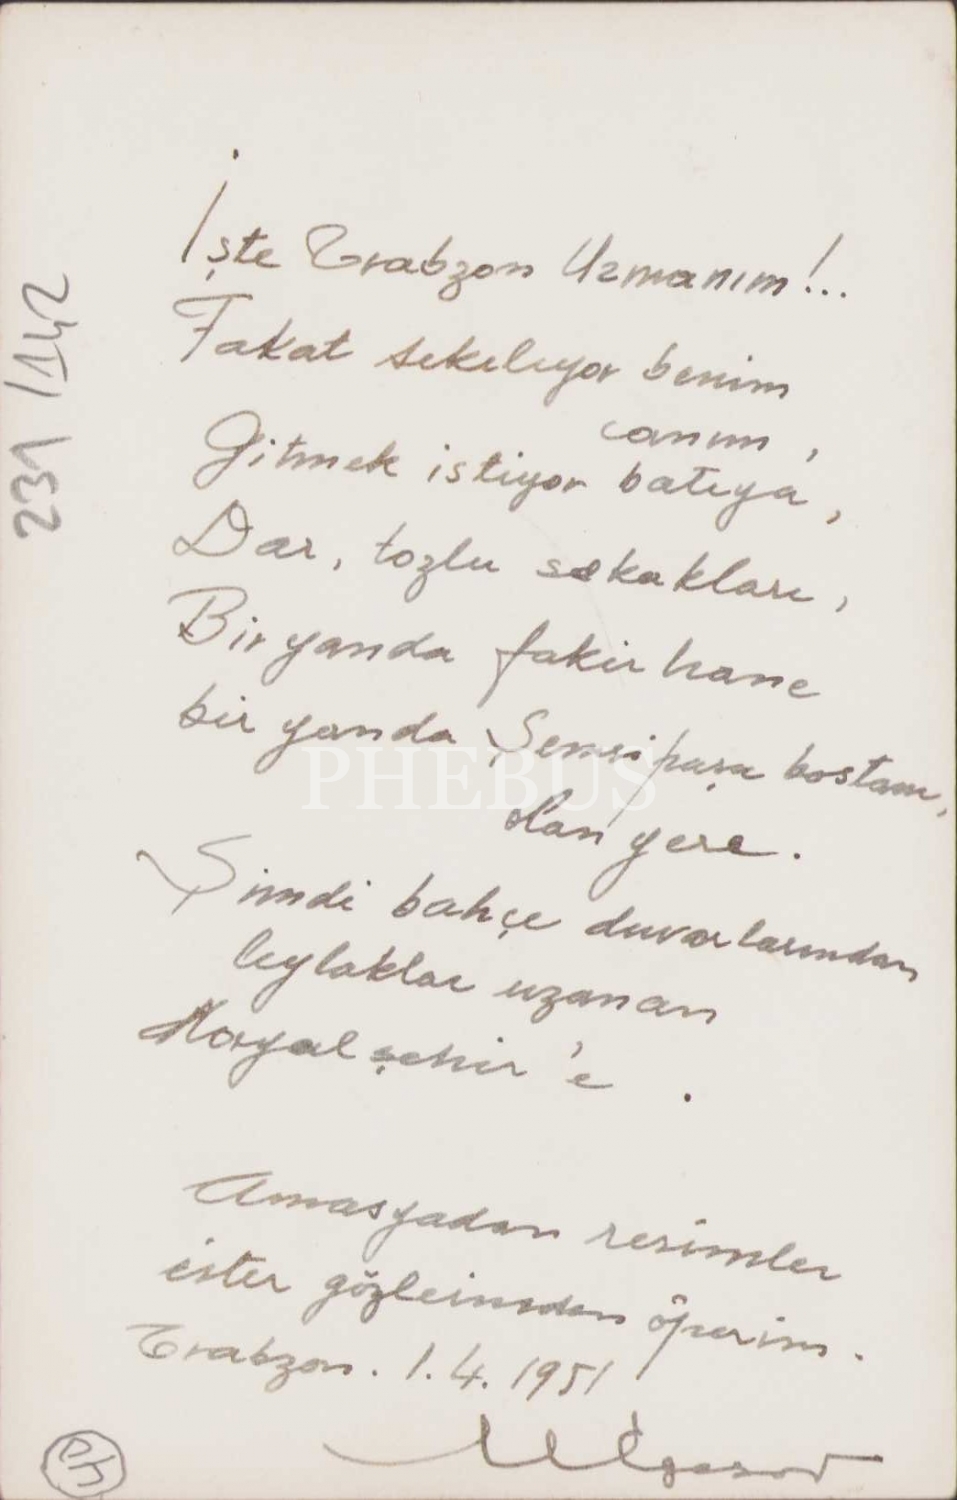 İşte Trabzon Uzmanım!..
Fakat sıkılıyor benim
canım,
Gitmek istiyor batıya,
Dar, tozlu sokakları,
Bir yanda fakir hane
bir yanda Şemsipaşa bostanı,
olan yere.
Şimdi bahçe duvarlarından
leylaklar uzanan
Hayal şehir'e.
Amasyadan resimler
ister gözlerinden öperim.
Trabzon. 1.4.1951
231/142
PHEBUS